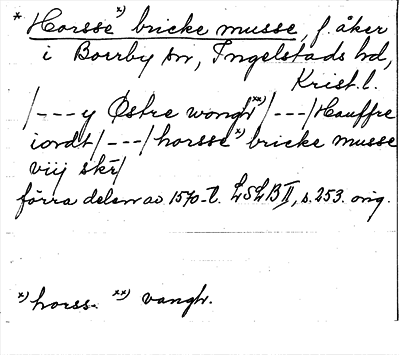 * Horsse *) bricke musse, f. åker
i Borrby sn, Ingelstads hd,
Krist. l.
/---y Østre wongh **)/---/Hauffre
iordt/---/horsse *) bricke musse
viij skr/
förra delen av 1570-t. LSLB II, s. 253. orig.
*) horss- **) vangh.